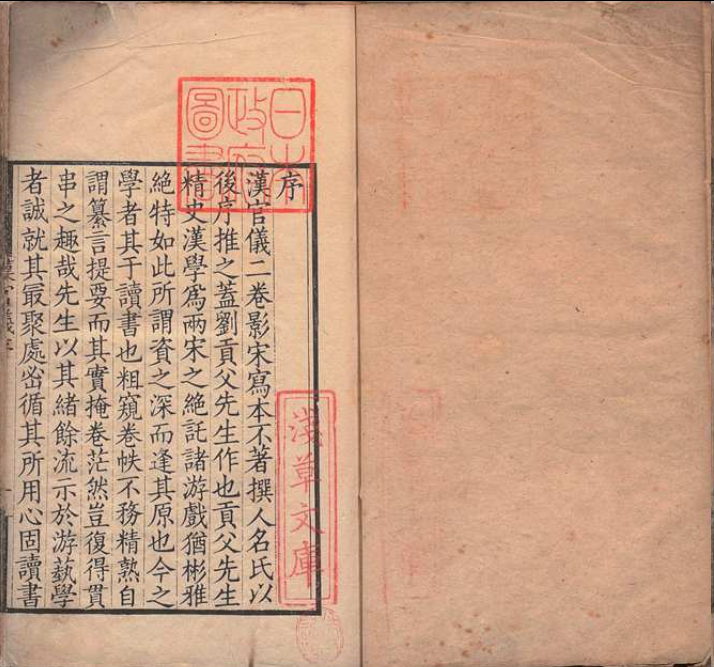 序
漢官儀二卷影宋寫本不著撰人名氏以
後序推之蓋劉貢父先生作也貢父先生
精史漢學爲兩宋之絶託諸游戲猶彬雅
絶特如此所謂資之深而逢其原也今之
學者其于讀書也粗窺卷帙不務精熟自
謂纂言提要而其實掩卷茫然豈復得貫
串之趣哉先生以其緒餘流示於游藝學
者誠就其最聚處密循其所用心固讀書
日本
政府
圖書
淺草文庫